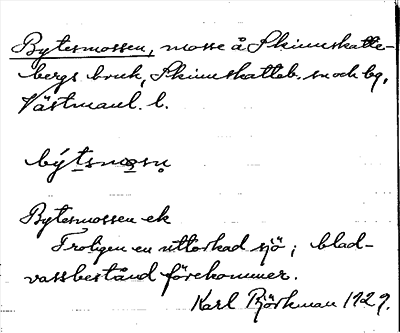 Bytesmossen, mosse å Skinnskatte-
bergs bruk, Skinnskatteb. sn och bg,
Västmanl. l.
býtsmosn
Bytesmossen ek
Troligen en uttorkad sjö; blad-
vassbestånd förekommer.
Karl Björkman 1929.